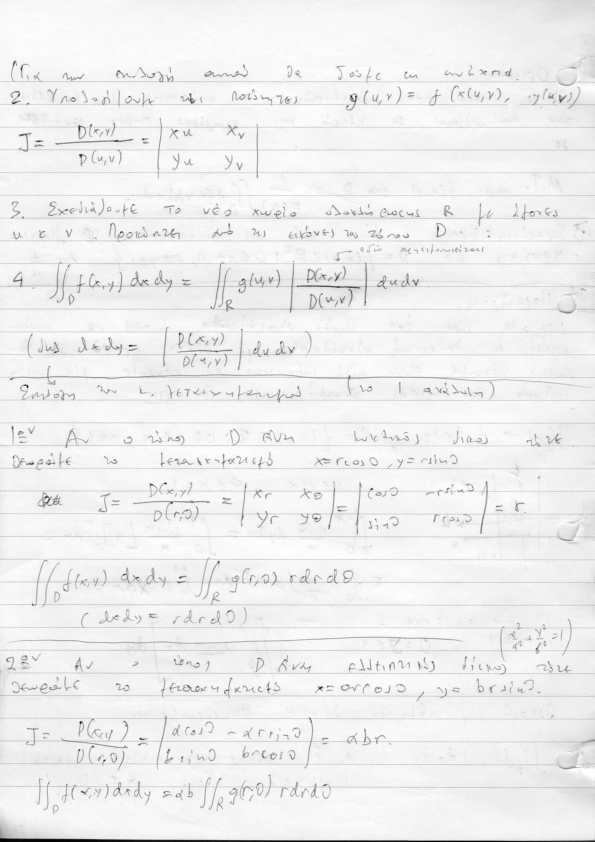 (Για την επιλογή αυτού θα δούμε
2. Υπολογίζουμε τις ποσότητες g(u,v) = f(x(u,v), y(u,v))
J = D(x,y)/D(u,v) = | xu xv |
| yu yv |
3. Σχεδιάζουμε το νέο χωρίο ολοκλήρωσης R με άξονες
u κ v. Προκύπτει από τις εικόνες του τόπου D
4. ∬_D f(x,y) dx dy = ∬_R g(u,v) |D(x,y)/D(u,v)| du dv
(dx dy = |D(x,y)/D(u,v)| du dv)
Επιλογή του κ. μετασχηματισμού (το 1 αναλυτικά)
1ον Αν ο τόπος D είναι κυκλικός δίσκος τότε
θεωρούμε το μετασχηματισμό x=rcosθ, y=rsinθ
J = D(x,y)/D(r,θ) = | xr xθ | = | cosθ -rsinθ | = r.
| yr yθ | | sinθ rcosθ |
∬_D f(x,y) dx dy = ∬_R g(r,θ) r dr dθ.
(dx dy = r dr dθ)
(x²/a² + y²/b² = 1)
2ον Αν ο τόπος D είναι ελλειπτικός δίσκος τότε
θεωρούμε το μετασχηματισμό x=arcosθ, y=brsinθ.
J = D(x,y)/D(r,θ) = | acosθ -arsinθ | = abr.
| bsinθ brcosθ |
∬_D f(x,y) dx dy = ab ∬_R g(r,θ) r dr dθ